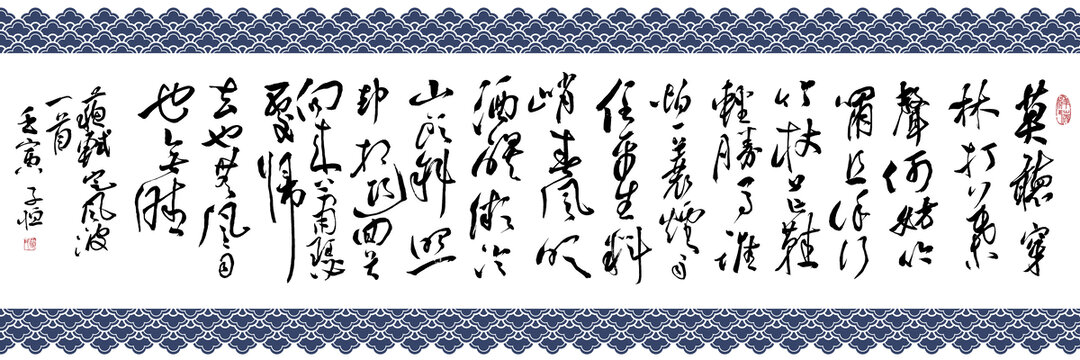 莫聽穿
林打葉
聲何妨吟
嘯且徐行
竹杖芒鞋
輕勝馬誰
怕一蓑煙雨
任平生料
峭春風吹
酒醒微冷
山頭斜照
卻相迎回首
向來蕭瑟
處歸
去也無風雨
也無晴
蘇軾定風波
一首
壬寅 子恒